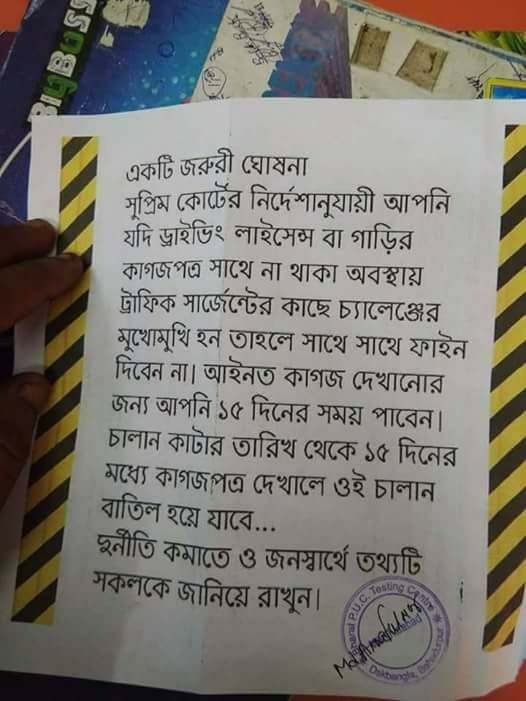 BIGBOSS
একটি জরুরী ঘোষনা
সুপ্রিম কোর্টের নির্দেশানুযায়ী আপনি
যদি ড্রাইভিং লাইসেন্স বা গাড়ির
কাগজপত্র সাথে না থাকা অবস্থায়
ট্রাফিক সার্জেন্টের কাছে চ্যালেঞ্জের
মুখোমুখি হন তাহলে সাথে সাথে ফাইন
দিবেন না। আইনত কাগজ দেখানোর
জন্য আপনি ১৫ দিনের সময় পাবেন।
চালান কাটার তারিখ থেকে ১৫ দিনের
মধ্যে কাগজপত্র দেখালে ওই চালান
বাতিল হয়ে যাবে...
দুর্নীতি কমাতে ও জনস্বার্থে তথ্যটি
সকলকে জানিয়ে রাখুন।
P.U.C. Testing Centre
Dakbangla,